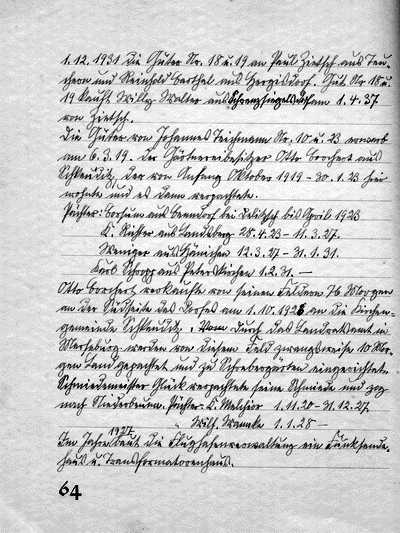 1.12.1931 die Güter Nr. 18 u. 19 an Paul Zietsch aus Teu-
chern und Reinhold Barthel aus Hergisdorf. Gut Nr. 18 u.
19 kaufte Willy Walter aus am 1.4.37
von Zietsch.
Die Güter von Johannes Teichmann Nr. 10 u. 23 erwarb
am 6.3.19. der Gärtnereibesitzer Otto Borchert aus
Schkeuditz, der von Anfang Oktober 1919 - 30.1.23 hier
wohnte und es dann verpachtete.
Pächter: aus Benndorf bei Delitzsch bis April 1923
K. Richter aus Landsberg 28.4.23 - 11.3.27.
Weniger aus Hänichen 12.3.27 - 31.1.31.
Karl Schopp aus Peterskirchen 1.2.31. —
Otto Borchert verkaufte von seinen Feldern 76 Morgen
an der Südseite des Dorfes am 1.10.1926 an die Kirchen-
gemeinde Schkeuditz. Durch das Landratsamt in
Merseburg werden von diesem Feld zwangsweise 10 Mor-
gen Land gepachtet und zu Schrebergärten eingerichtet.
Schmiedemeister Glück verpachtete seine Schmiede und zog
nach Niederbeuna. Pächter: K. Melchior 1.11.20 - 31.12.27
" Wilh. Warnke 1.1.28 —
Im Jahre 1927 baut die Flughafenverwaltung ein Funksende-
haus u. Transformatorenhaus.
64